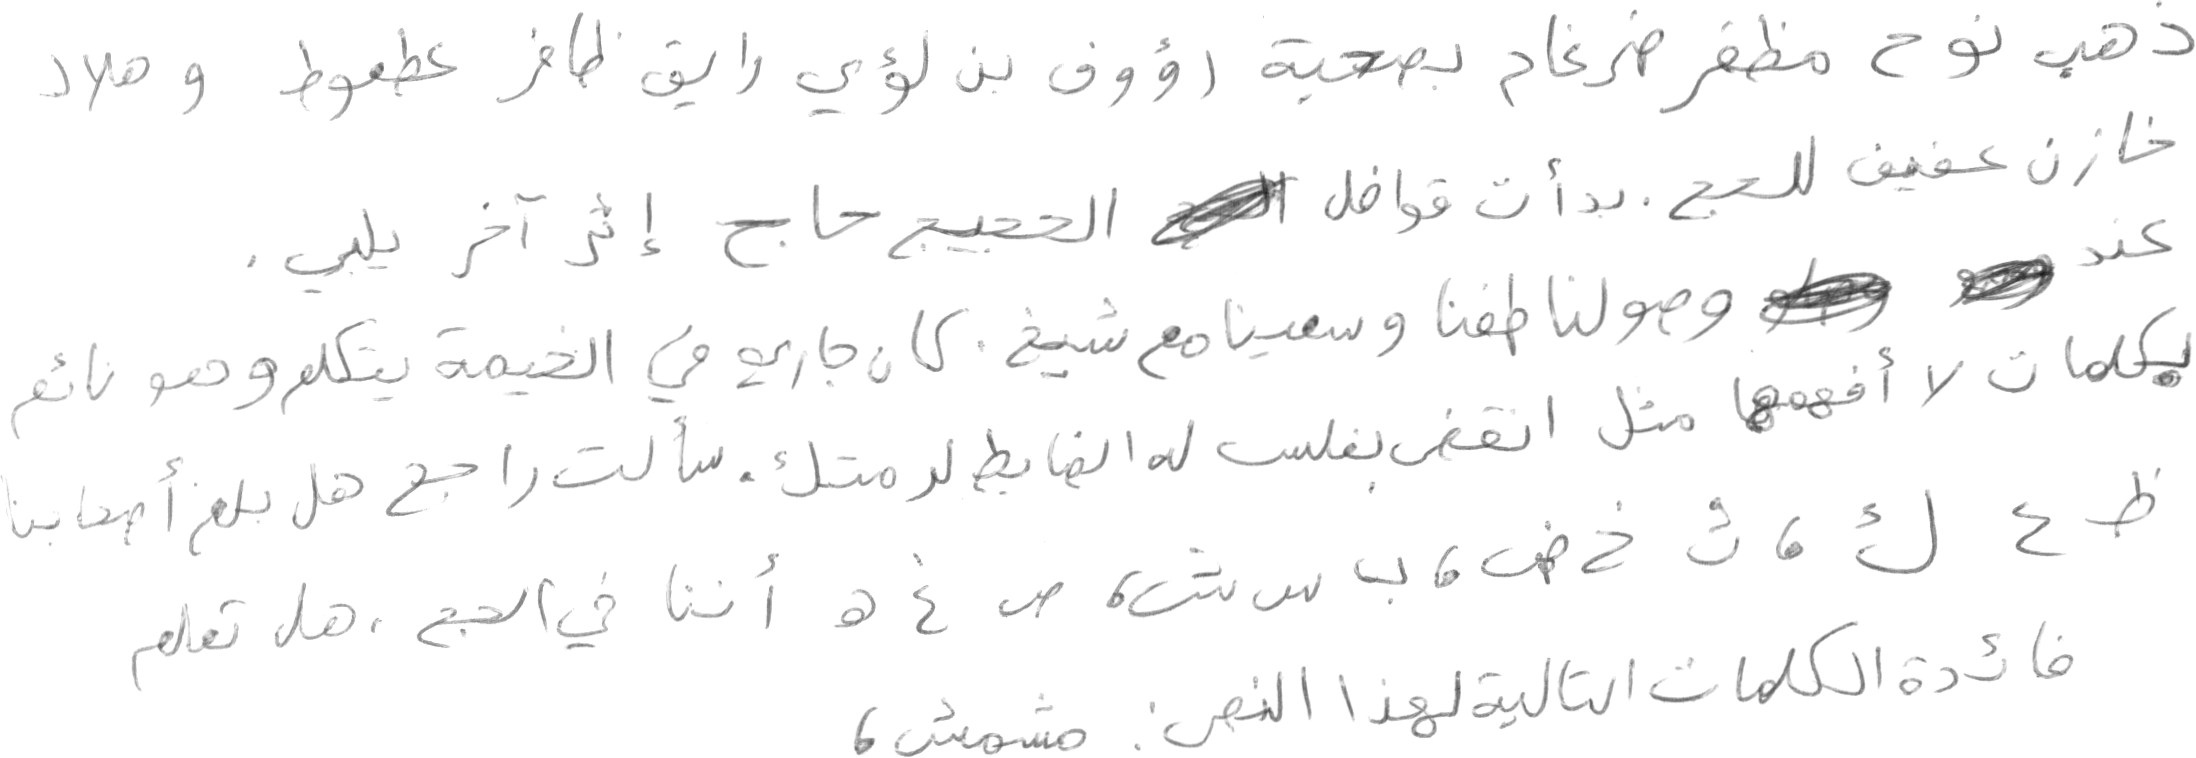 ذهب نوح مظفر ضرغام بصحبة رؤوف بن لؤي رايق ظافر عطعوط و هلال
خازن عفيف للحج. بدأت قوافل الحجيج حاج إثر آخر يلبي.
عند وصولنا طفنا وسعينا مع شيخ. كان جاري في الخيمة يتكلم وهو نائم
بكلمات لا أفهمها مثل انقض بفلس له الضابط لد متك. سألت راجح هل بلغ أصحابنا
ظ ع ئ ك، ث خ ض، ب س ش، ص غ ه أننا في الحج. هل تعلم
فائدة الكلمات التالية لهذا النص: مشمش،